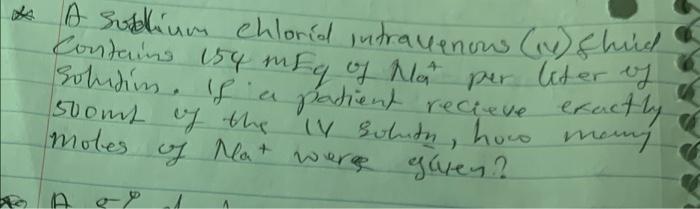 * A Sodium chlorid intravenous (iv) fluid
Contains 154 mEq of Na+ per liter of
Solution. If a patient recieve exactly
500mL of the IV Solutn, how many
moles of Na+ were given?
A